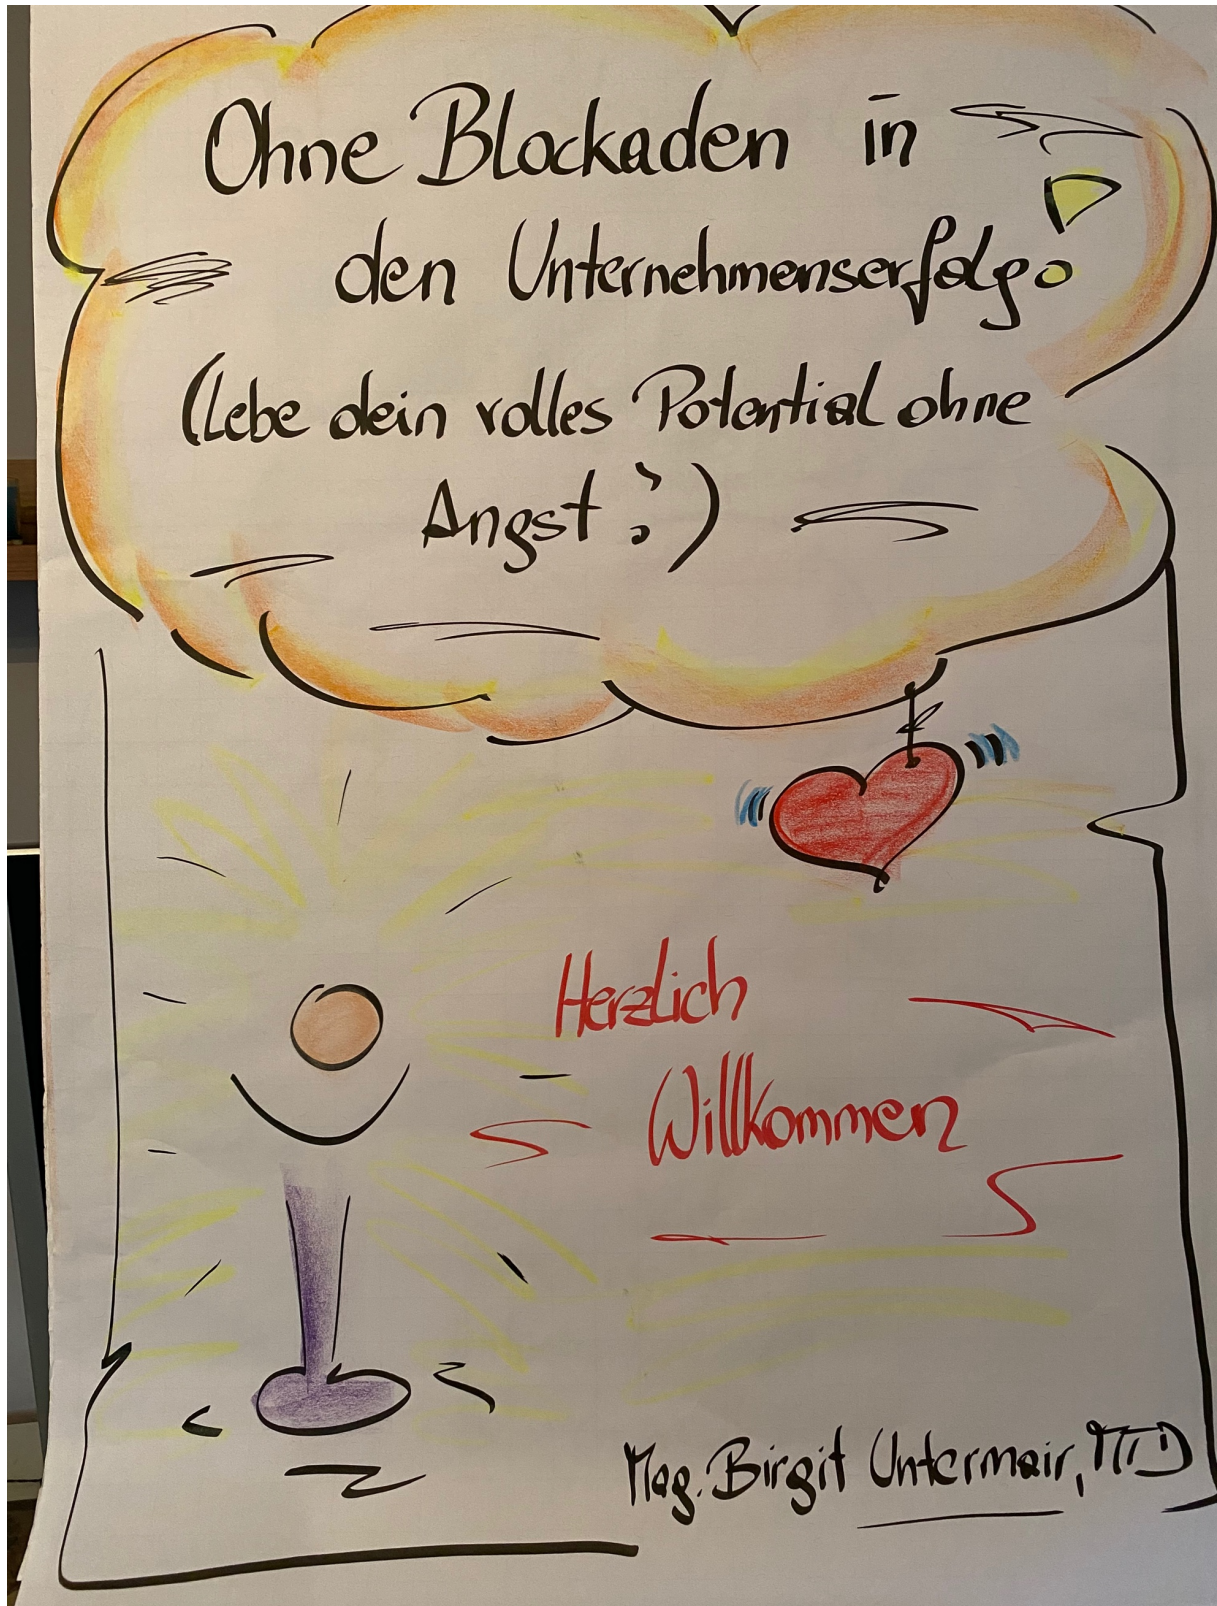 Ohne Blockaden in
den Unternehmenserfolg!
(Lebe dein volles Potential ohne
Angst!)
Herzlich
Willkommen
Mag. Birgit Untermair, MTD